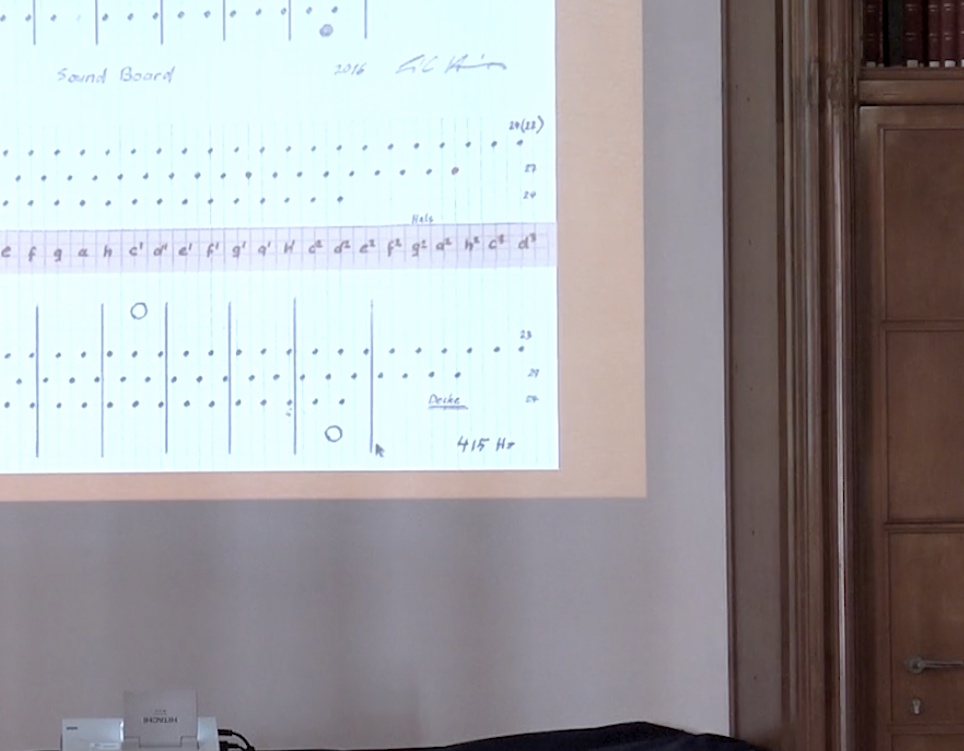 Sound Board 2016
28(22)
27
24
Hals
e f g a h c¹ d¹ e¹ f¹ g¹ a¹ h¹ c² d² e² f² g² a² h² c³ d³
23
Decke
415 Hz
HITACHI